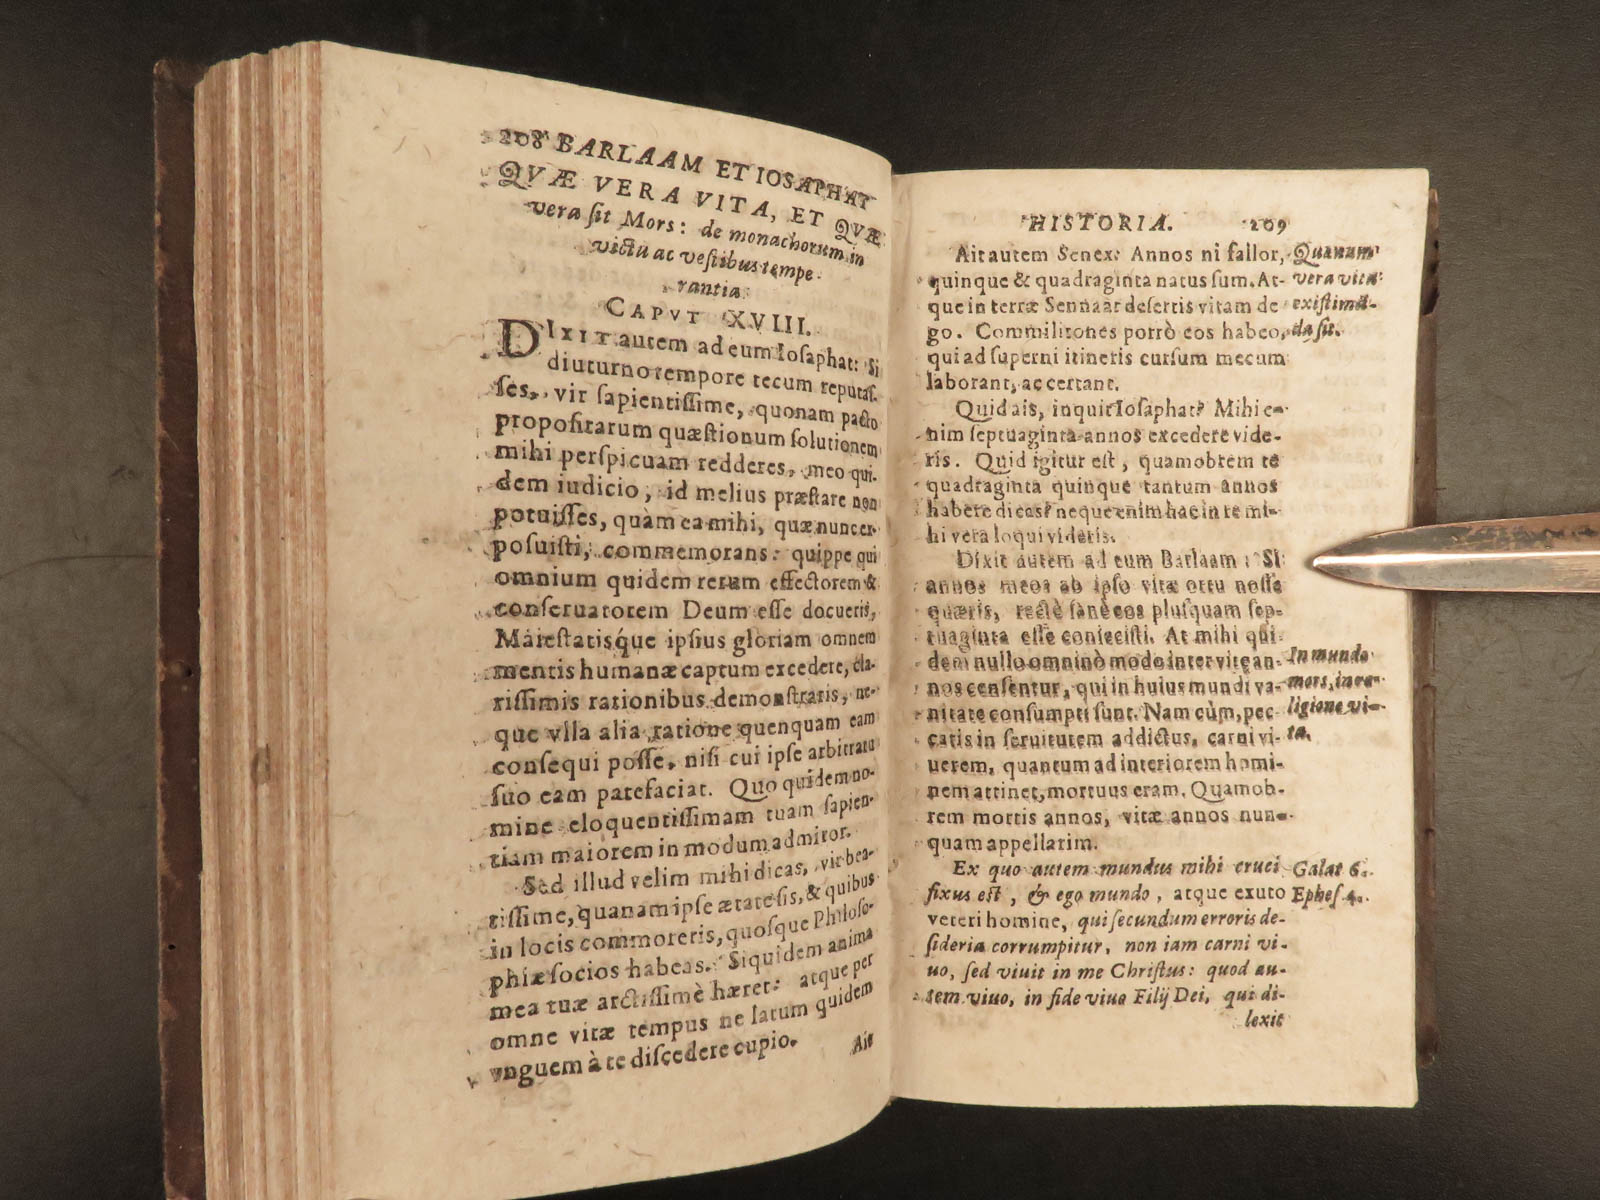 208 BARLAAM ET IOSAPHAT
QVÆ VERA VITA, ET QVÆ
vera sit Mors: de monachorum in
victu ac vestibus tempe-
rantia.
CAPVT XVIII.
DIXIT autem ad eum Iosaphat: Si
diuturno tempore tecum reputas-
ses, vir sapientissime, quonam pacto
propositarum quæstionum solutionem
mihi perspicuam redderes, meo qui-
dem iudicio, id melius præstare non
potuisses, quàm ea mihi, quæ nunc ex-
posuisti, commemorans: quippe qui
omnium quidem rerum effectorem &
conseruatorem Deum esse docueris,
Maiestatisq́ue ipsius gloriam omnem
mentis humanæ captum excedere, cla-
rissimis rationibus demonstraris, ne-
que vlla alia ratione quenquam eam
consequi posse, nisi cui ipse arbitratu
suo eam patefaciat. Quo quidem no-
mine eloquentissimam tuam sapien-
tiam maiorem in modum admiror.
Sed illud velim mihi dicas, vir bea-
tissime, quanam ipse ætate sis, & quibus
in locis commoreris, quosque Philoso-
phiæ socios habeas. Siquidem anima
mea tuæ arctissimè hæret: atque per
omne vitæ tempus ne latum quidem
vnguem à te discedere cupio.
Ait
HISTORIA. 209
Ait autem Senex: Annos ni fallor,
quinque & quadraginta natus sum. At-
que in terræ Sennaar desertis vitam de
go. Commilitones porrò eos habeo,
qui ad superni itineris cursum mecum
laborant, ac certant.
Quid ais, inquit Iosaphat? Mihi e-
nim septuaginta annos excedere vide-
ris. Quid igitur est, quamobrem te
quadraginta quinque tantum annos
habere dicas? neque enim hac in re mi-
hi vera loqui videris.
Dixit autem ad eum Barlaam: Si
annos meos ab ipso vitæ ortu nosse
quæris, rectè sanè eos plusquam sep-
tuaginta esse coniecisti. At mihi qui-
dem nullo omninò modo inter vitæ an-
nos censentur, qui in huius mundi va-
nitate consumpti sunt. Nam cùm, pec-
catis in seruitutem addictus, carni vi-
uerem, quantum ad interiorem homi-
nem attinet, mortuus eram. Quamob-
rem mortis annos, vitæ annos nun-
quam appellarim.
Ex quo autem mundus mihi cruci
fixus est, & ego mundo, atque exuto
veteri homine, qui secundum erroris de-
sideria corrumpitur, non iam carni vi-
uo, sed viuit in me Christus: quod au-
tem viuo, in fide viuo Filij Dei, qui di-
lexit
Quænam
vera vita
existiman-
da sit.
In mundo
mors, in re-
ligione vi-
ta.
Galat 6.
Ephes 4.